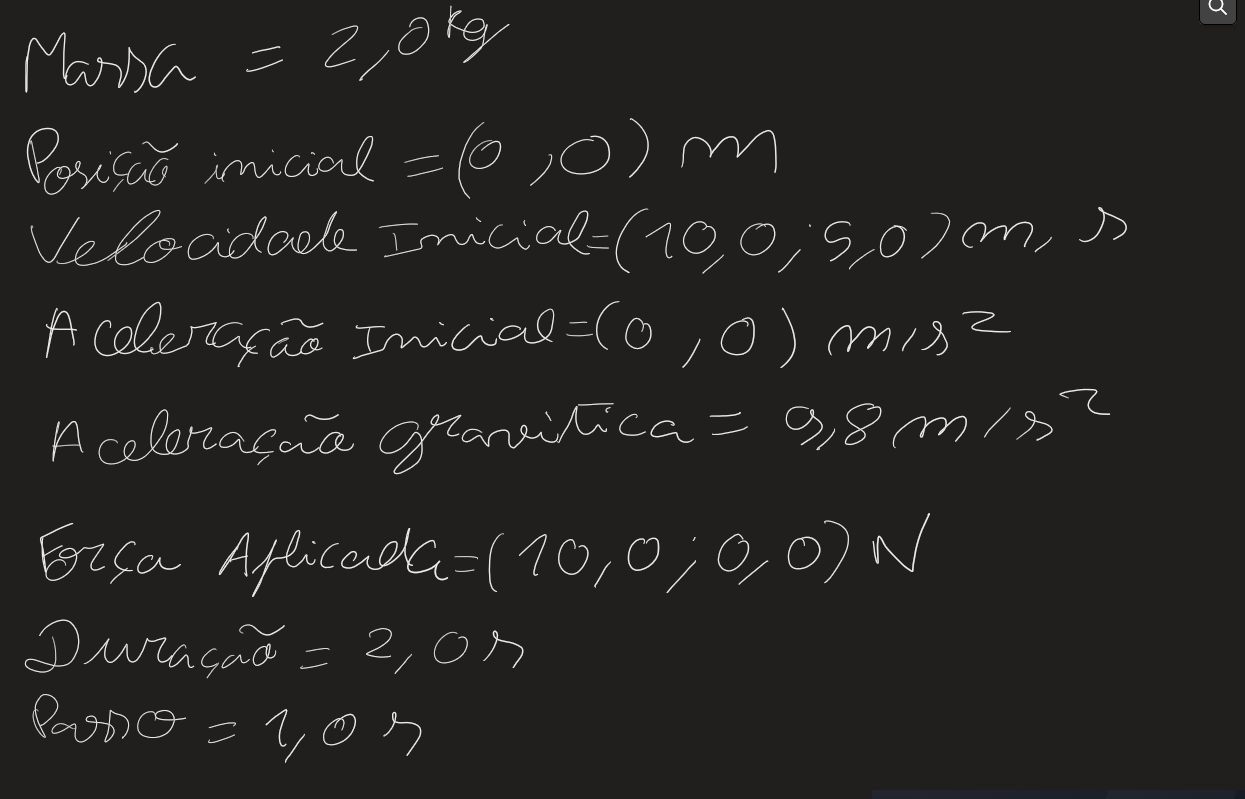 Massa = 2,0 kg
Posição inicial = (0 , 0) m
Velocidade Inicial = (10,0 ; 5,0) m, s
Aceleração Inicial = (0 , 0) m/s²
Aceleração gravitica = 9,8 m/s²
Força Aplicada = (10,0 ; 0,0) N
Duração = 2,0 s
Passo = 1,0 s